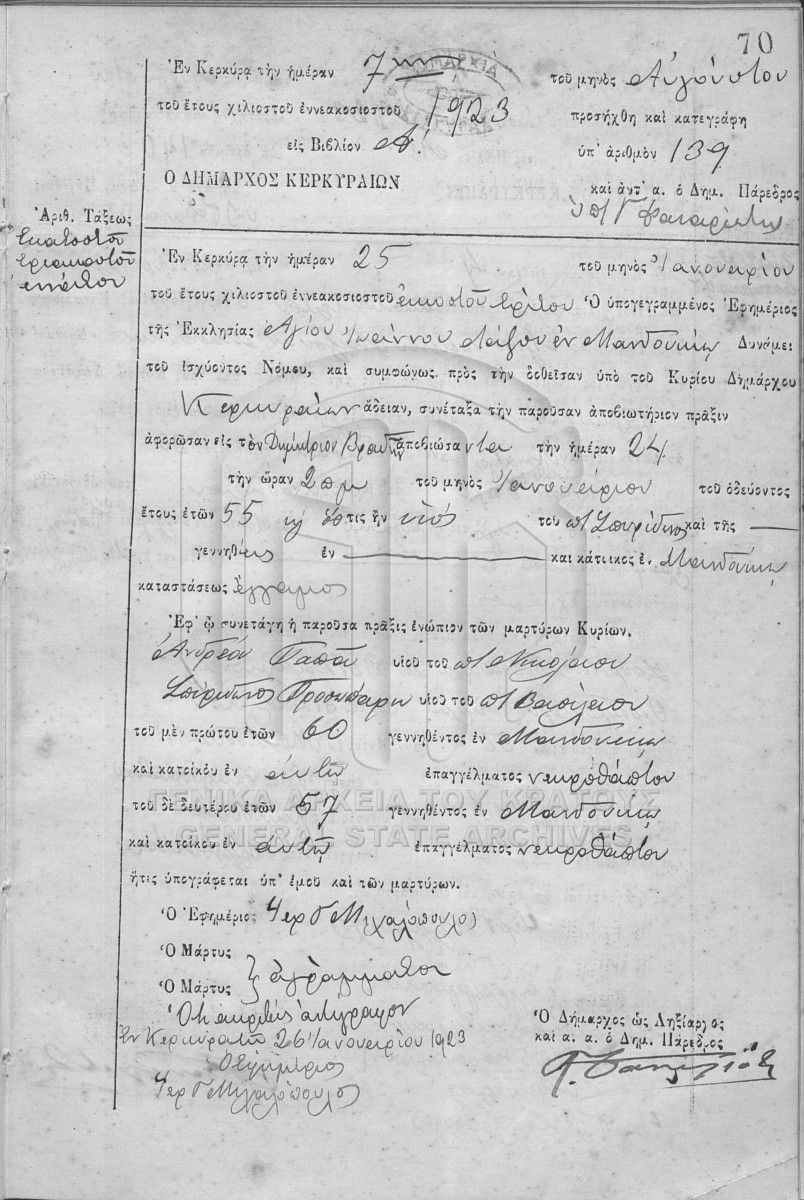 70
Ἐν Κερκύρᾳ τὴν ἡμέραν 7ην τοῦ μηνὸς Αὐγούστου
τοῦ ἔτους χιλιοστοῦ ἐννεακοσιοστοῦ 1923 προσήχθη καὶ κατεγράφη
εἰς Βιβλίον Α΄. ὑπ' ἀριθμὸν 139
Ὁ ΔΗΜΑΡΧΟΣ ΚΕΡΚΥΡΑΙΩΝ καὶ ἀντ' α. ὁ Δημ. Πάρεδρος
Ἀριθ. Τάξεως
Ἑκατοστὸν
τριακοστὸν
ἔννατον
Ἐν Κερκύρᾳ τὴν ἡμέραν 25 τοῦ μηνὸς Ἰανουαρίου
τοῦ ἔτους χιλιοστοῦ ἐννεακοσιοστοῦ εἰκοστοῦ τρίτου Ὁ ὑπογεγραμμένος Ἐφημέριος
τῆς Ἐκκλησίας Ἁγίου Ἰωάννου Λάζου ἐν Μανδουκίῳ Δυνάμει
τοῦ ἰσχύοντος Νόμου, καὶ συμφώνως πρὸς τὴν δοθεῖσαν ὑπὸ τοῦ Κυρίου Δημάρχου
Κερκυραίων ἄδειαν, συνέταξα τὴν παροῦσαν ἀποβιωτήριον πρᾶξιν
ἀφορῶσαν εἰς τὸν Δημήτριον ἀποβιώσαντα τὴν ἡμέραν 24
τὴν ὥραν 2 πμ τοῦ μηνὸς Ἰανουαρίου τοῦ ὁδεύοντος
ἔτους ἐτῶν 55 ὅστις ἦν υἱὸς τοῦ πτ Σπυρίδωνος καὶ τῆς —
γεννηθεὶς ἐν — καὶ κάτοικος ἐν Μανδουκίῳ
καταστάσεως ἔγγαμος
Ἐφ' ᾧ συνετάγη ἡ παροῦσα πρᾶξις ἐνώπιον τῶν μαρτύρων Κυρίων.
Ἀνδρέα Παπᾶ υἱοῦ τοῦ πτ Νικολάου
Σπυρίδωνος υἱοῦ τοῦ πτ Βασιλείου
τοῦ μὲν πρώτου ἐτῶν 60 γεννηθέντος ἐν Μανδουκίῳ
καὶ κατοίκου ἐν αὐτῷ ἐπαγγέλματος νεκροθάπτου
ΓΕΝΙΚΑ ΑΡΧΕΙΑ ΤΟΥ ΚΡΑΤΟΥΣ
τοῦ δὲ δευτέρου ἐτῶν 57 γεννηθέντος ἐν Μανδουκίῳ
GENERAL STATE ARCHIVES
καὶ κατοίκου ἐν αὐτῷ ἐπαγγέλματος νεκροθάπτου
ἥτις ὑπογράφεται ὑπ' ἐμοῦ καὶ τῶν μαρτύρων.
Ὁ Ἐφημέριος Ἱερ Γ Μιχαλόπουλος
Ὁ Μάρτυς
Ὁ Μάρτυς } ἀγράμματοι
Ὅτι ἀκριβὲς ἀντίγραφον
Ἐν Κερκύρᾳ τῇ 26 Ἰανουαρίου 1923
Ὁ Ἐφημέριος
Ἱερ Γ Μιχαλόπουλος
Ὁ Δήμαρχος ὡς Ληξίαρχος
καὶ α. α. ὁ Δημ. Πάρεδρος